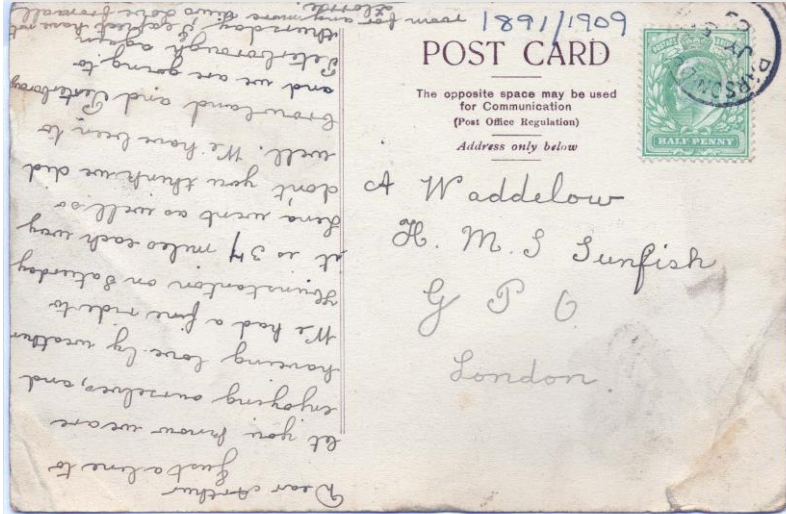 1891/1909
POST CARD
The opposite space may be used
for Communication
(Post Office Regulation)
Address only below
POSTAGE REVENUE
HALF PENNY
PARSON
JY 5
A Waddelow
H. M. S Sunfish
G P O
London
Dear Arthur
Just a line to
let you know we are
enjoying ourselves, and
haveing love ly weather
We had a fine ride to
Hunstanton on Saturday
it is 37 miles each way
Lena went as well so
don't you think we did
well. We have been to
Crowland and Peterboroug
and we are going to
Peterborough again
thursday, I have not
room for any more love from all
Florrie